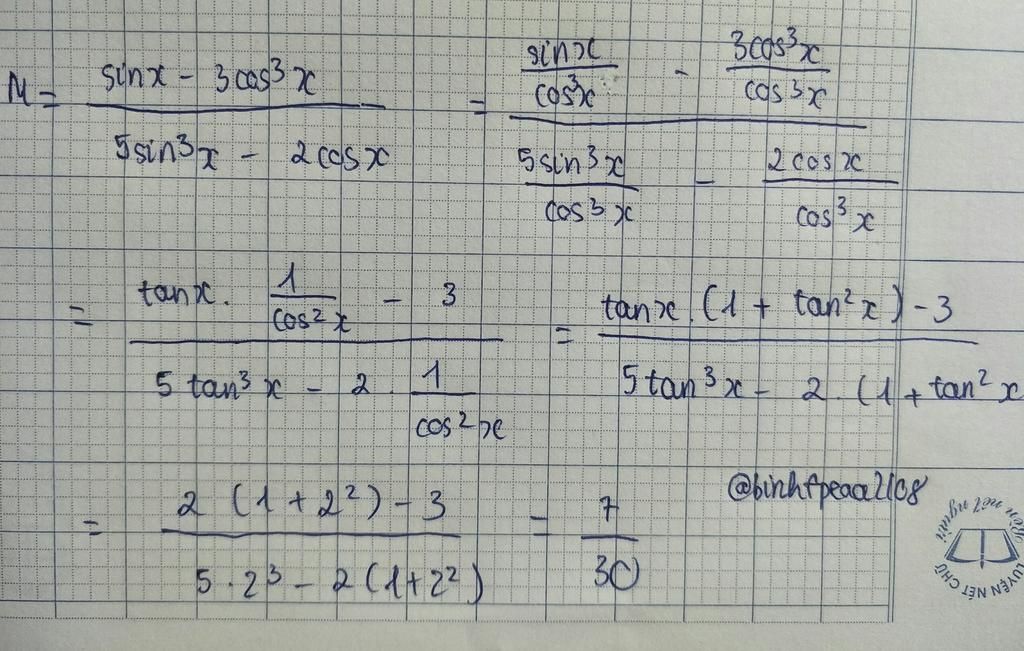 M = (sinx - 3cos³x) / (5sin³x - 2cosx) = (sinx/cos³x - 3cos³x/cos³x) / (5sin³x/cos³x - 2cosx/cos³x)
= (tanx . 1/cos²x - 3) / (5tan³x - 2 . 1/cos²x) = (tanx . (1 + tan²x) - 3) / (5tan³x - 2 . (1 + tan²x
= (2 (1 + 2²) - 3) / (5 . 2³ - 2 (1 + 2²)) = 7/30
LUYỆN NÉT CHỮ